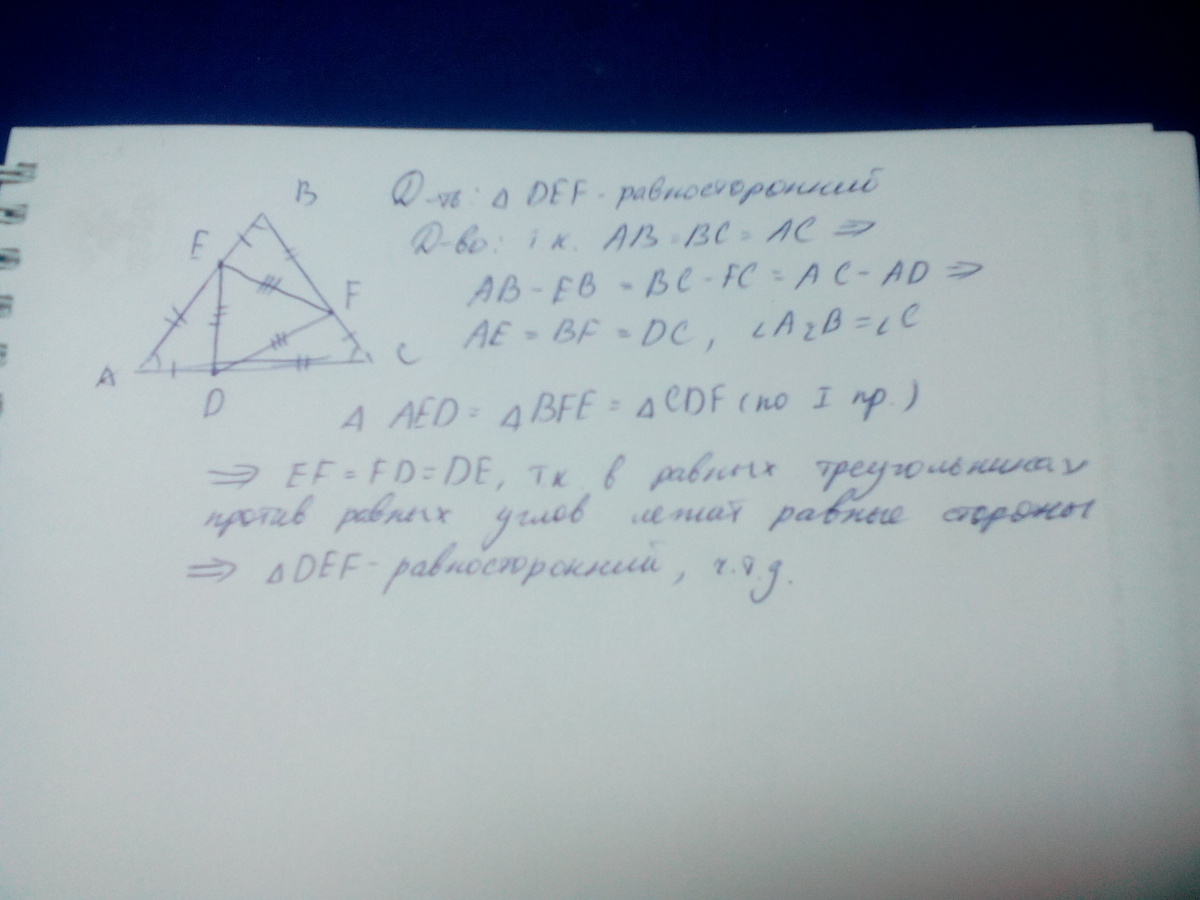 B
E
F
A
C
D
Д-ть: △ DEF - равносторонний
Д-во: т.к. AB = BC = AC ⇒
AB - EB = BC - FC = AC - AD ⇒
AE = BF = DC, ∠A = ∠B = ∠C
△ AED = △ BFE = △ CDF (по I пр.)
⇒ EF = FD = DE, т.к в равных треугольниках
против равных углов лежат равные стороны
⇒ △DEF - равносторонний, ч.т.д.